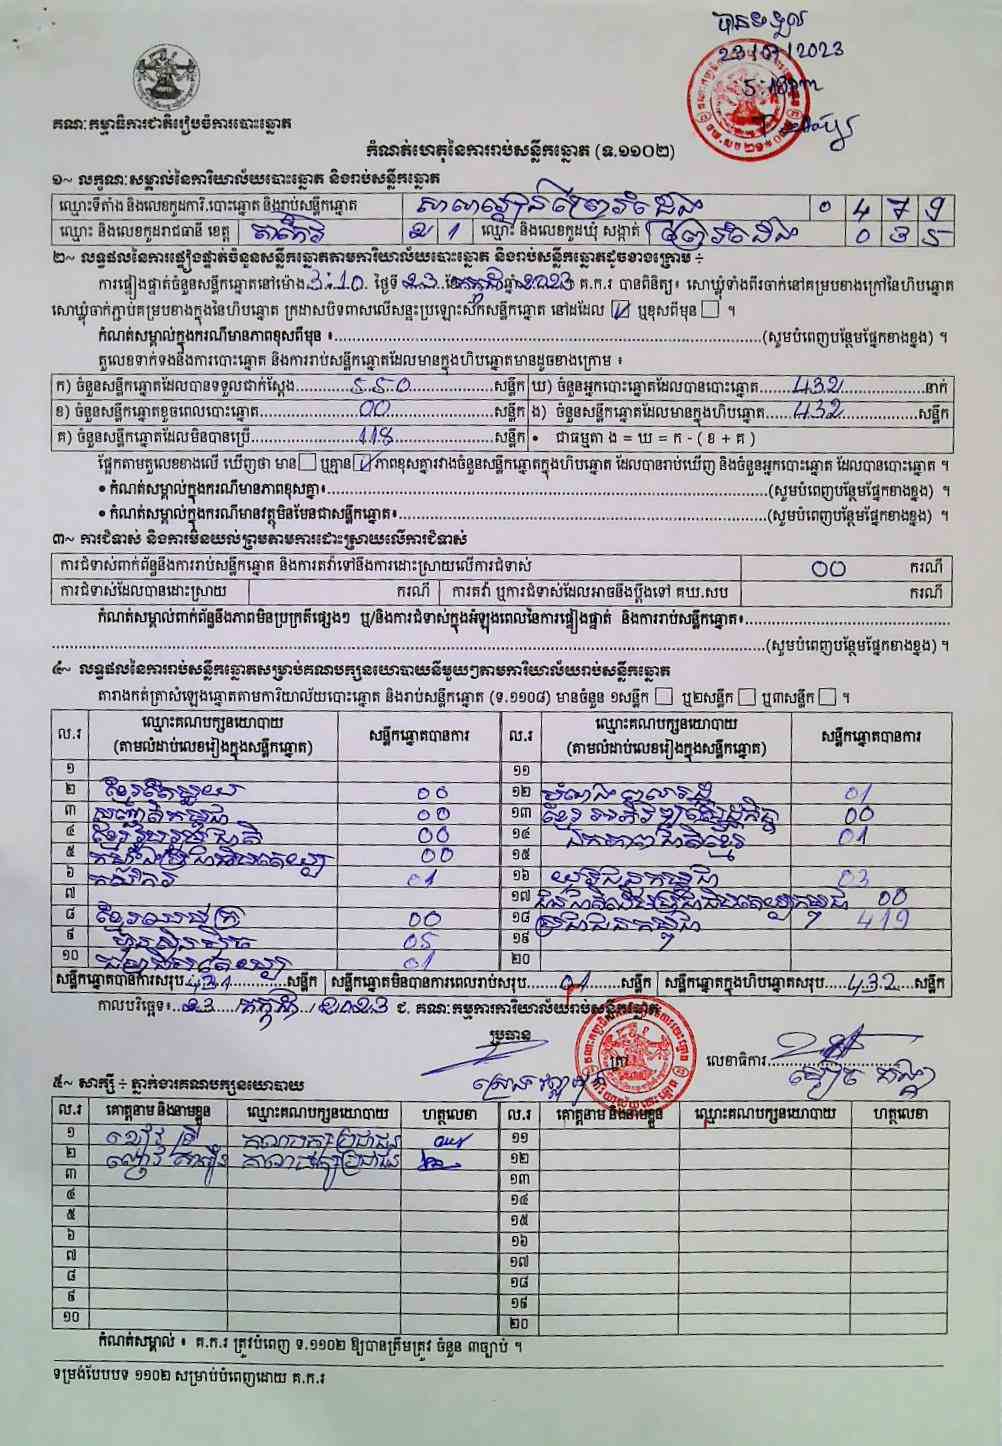 បានទទួល
23/07/2023
គណៈកម្មាធិការជាតិរៀបចំការបោះឆ្នោត
កំណត់ហេតុនៃការរាប់សន្លឹកឆ្នោត (ទ.១១០២)
១~ លក្ខណៈសម្គាល់នៃការិយាល័យបោះឆ្នោត និងរាប់សន្លឹកឆ្នោត
ឈ្មោះទីតាំង និងលេខកូដការិ.បោះឆ្នោត និងរាប់សន្លឹកឆ្នោត 0 4 7 9
ឈ្មោះ និងលេខកូដរាជធានី ខេត្ត តាកែវ 2 1 ឈ្មោះ និងលេខកូដឃុំ សង្កាត់ 0 3 5
២~ លទ្ធផលនៃការផ្ទៀងផ្ទាត់ចំនួនសន្លឹកឆ្នោតតាមការិយាល័យបោះឆ្នោត និងរាប់សន្លឹកឆ្នោតដូចខាងក្រោម ÷
ការផ្ទៀងផ្ទាត់ចំនួនសន្លឹកឆ្នោតនៅម៉ោង 3:10 ថ្ងៃទី 23 ខែ កក្កដា ឆ្នាំ 2023 គ.ក.រ បានពិនិត្យ៖ សោឃ្លុំទាំងពីរចាក់នៅគម្របខាងក្រៅនៃហិបឆ្នោត
សោឃ្លុំចាក់ភ្ជាប់គម្របខាងក្នុងនៃហិបឆ្នោត ក្រដាសបិទពាសលើសន្ទះប្រឡោះស៊កសន្លឹកឆ្នោត នៅដដែល ☑ ឬខុសពីមុន ☐ ។
កំណត់សម្គាល់ក្នុងករណីមានភាពខុសពីមុន ៖ (សូមបំពេញបន្ថែមផ្នែកខាងខ្នង) ។
តួលេខទាក់ទងនឹងការបោះឆ្នោត និងការរាប់សន្លឹកឆ្នោតដែលមានក្នុងហិបឆ្នោតមានដូចខាងក្រោម ៖
ក) ចំនួនសន្លឹកឆ្នោតដែលបានទទួលជាក់ស្តែង 550 សន្លឹក ឃ) ចំនួនអ្នកបោះឆ្នោតដែលបានបោះឆ្នោត 432 នាក់
ខ) ចំនួនសន្លឹកឆ្នោតខូចពេលបោះឆ្នោត 00 សន្លឹក ង) ចំនួនសន្លឹកឆ្នោតដែលមានក្នុងហិបឆ្នោត 432 សន្លឹក
គ) ចំនួនសន្លឹកឆ្នោតដែលមិនបានប្រើ 118 សន្លឹក • ជាធម្មតា ង = ឃ = ក - ( ខ + គ )
ផ្អែកតាមតួលេខខាងលើ ឃើញថា មាន ☐ ឬគ្មាន ☑ ភាពខុសគ្នារវាងចំនួនសន្លឹកឆ្នោតក្នុងហិបឆ្នោត ដែលបានរាប់ឃើញ និងចំនួនអ្នកបោះឆ្នោត ដែលបានបោះឆ្នោត ។
• កំណត់សម្គាល់ក្នុងករណីមានភាពខុសគ្នា៖ (សូមបំពេញបន្ថែមផ្នែកខាងខ្នង) ។
• កំណត់សម្គាល់ក្នុងករណីមានវត្ថុមិនមែនជាសន្លឹកឆ្នោត៖ (សូមបំពេញបន្ថែមផ្នែកខាងខ្នង) ។
៣~ ការជំទាស់ និងការមិនយល់ព្រមតាមការដោះស្រាយលើការជំទាស់
ការជំទាស់ពាក់ព័ន្ធនឹងការរាប់សន្លឹកឆ្នោត និងការតវ៉ាទៅនឹងការដោះស្រាយលើការជំទាស់ 00 ករណី
ការជំទាស់ដែលបានដោះស្រាយ ករណី ការតវ៉ា ឬការជំទាស់ដែលអាចនឹងប្តឹងទៅ គឃ.សប ករណី
កំណត់សម្គាល់ពាក់ព័ន្ធនឹងភាពមិនប្រក្រតីផ្សេងៗ ឬ/និងការជំទាស់ក្នុងអំឡុងពេលនៃការផ្ទៀងផ្ទាត់ និងការរាប់សន្លឹកឆ្នោត៖
(សូមបំពេញបន្ថែមផ្នែកខាងខ្នង) ។
៤~ លទ្ធផលនៃការរាប់សន្លឹកឆ្នោតសម្រាប់គណបក្សនយោបាយនីមួយៗតាមការិយាល័យរាប់សន្លឹកឆ្នោត
តារាងកត់ត្រាសំឡេងឆ្នោតតាមការិយាល័យបោះឆ្នោត និងរាប់សន្លឹកឆ្នោត (ទ.១១០៨) មានចំនួន ១សន្លឹក ☐ ឬ២សន្លឹក ☐ ឬ៣សន្លឹក ☐ ។
ល.រ ឈ្មោះគណបក្សនយោបាយ (តាមលំដាប់លេខរៀងក្នុងសន្លឹកឆ្នោត) សន្លឹកឆ្នោតបានការ ល.រ ឈ្មោះគណបក្សនយោបាយ (តាមលំដាប់លេខរៀងក្នុងសន្លឹកឆ្នោត) សន្លឹកឆ្នោតបានការ
១ ១១
២ ខ្មែរតែមួយ 00 ១២ 01
៣ សញ្ជាតិកម្ពុជា 00 ១៣ ខ្មែរអភិវឌ្ឍន៍សេដ្ឋកិច្ច 00
៤ ខ្មែររួបរួមជាតិ 00 ១៤ ឯកភាពជាតិខ្មែរ 01
៥ 00 ១៥
៦ កសិករ 01 ១៦ យុវជនកម្ពុជា 03
៧ ១៧ ជនជាតិដើមប្រជាធិបតេយ្យកម្ពុជា 00
៨ ខ្មែរឈប់ក្រ 00 ១៨ ប្រជាជនកម្ពុជា 419
៩ ហ៊្វុនស៊ិនប៉ិច 05 ១៩
១០ 01 ២០
សន្លឹកឆ្នោតបានការសរុប 431 សន្លឹក សន្លឹកឆ្នោតមិនបានការពេលរាប់សរុប 01 សន្លឹក សន្លឹកឆ្នោតក្នុងហិបឆ្នោតសរុប 432 សន្លឹក
កាលបរិច្ឆេទ៖ 23 / កក្កដា / 2023 ជ. គណៈកម្មការការិយាល័យរាប់សន្លឹកឆ្នោត
ប្រធាន ត្រា លេខាធិការ
៥~ សាក្សី ÷ ភ្នាក់ងារគណបក្សនយោបាយ
ល.រ គោត្តនាម និងនាមខ្លួន ឈ្មោះគណបក្សនយោបាយ ហត្ថលេខា ល.រ គោត្តនាម និងនាមខ្លួន ឈ្មោះគណបក្សនយោបាយ ហត្ថលេខា
១ គណបក្សប្រជាជន ១១
២ គណបក្សប្រជាជន ១២
៣ ១៣
៤ ១៤
៥ ១៥
៦ ១៦
៧ ១៧
៨ ១៨
៩ ១៩
១០ ២០
កំណត់សម្គាល់ ៖ គ.ក.រ ត្រូវបំពេញ ទ.១១០២ ឱ្យបានត្រឹមត្រូវ ចំនួន ៣ច្បាប់ ។
ទម្រង់បែបបទ ១១០២ សម្រាប់បំពេញដោយ គ.ក.រ